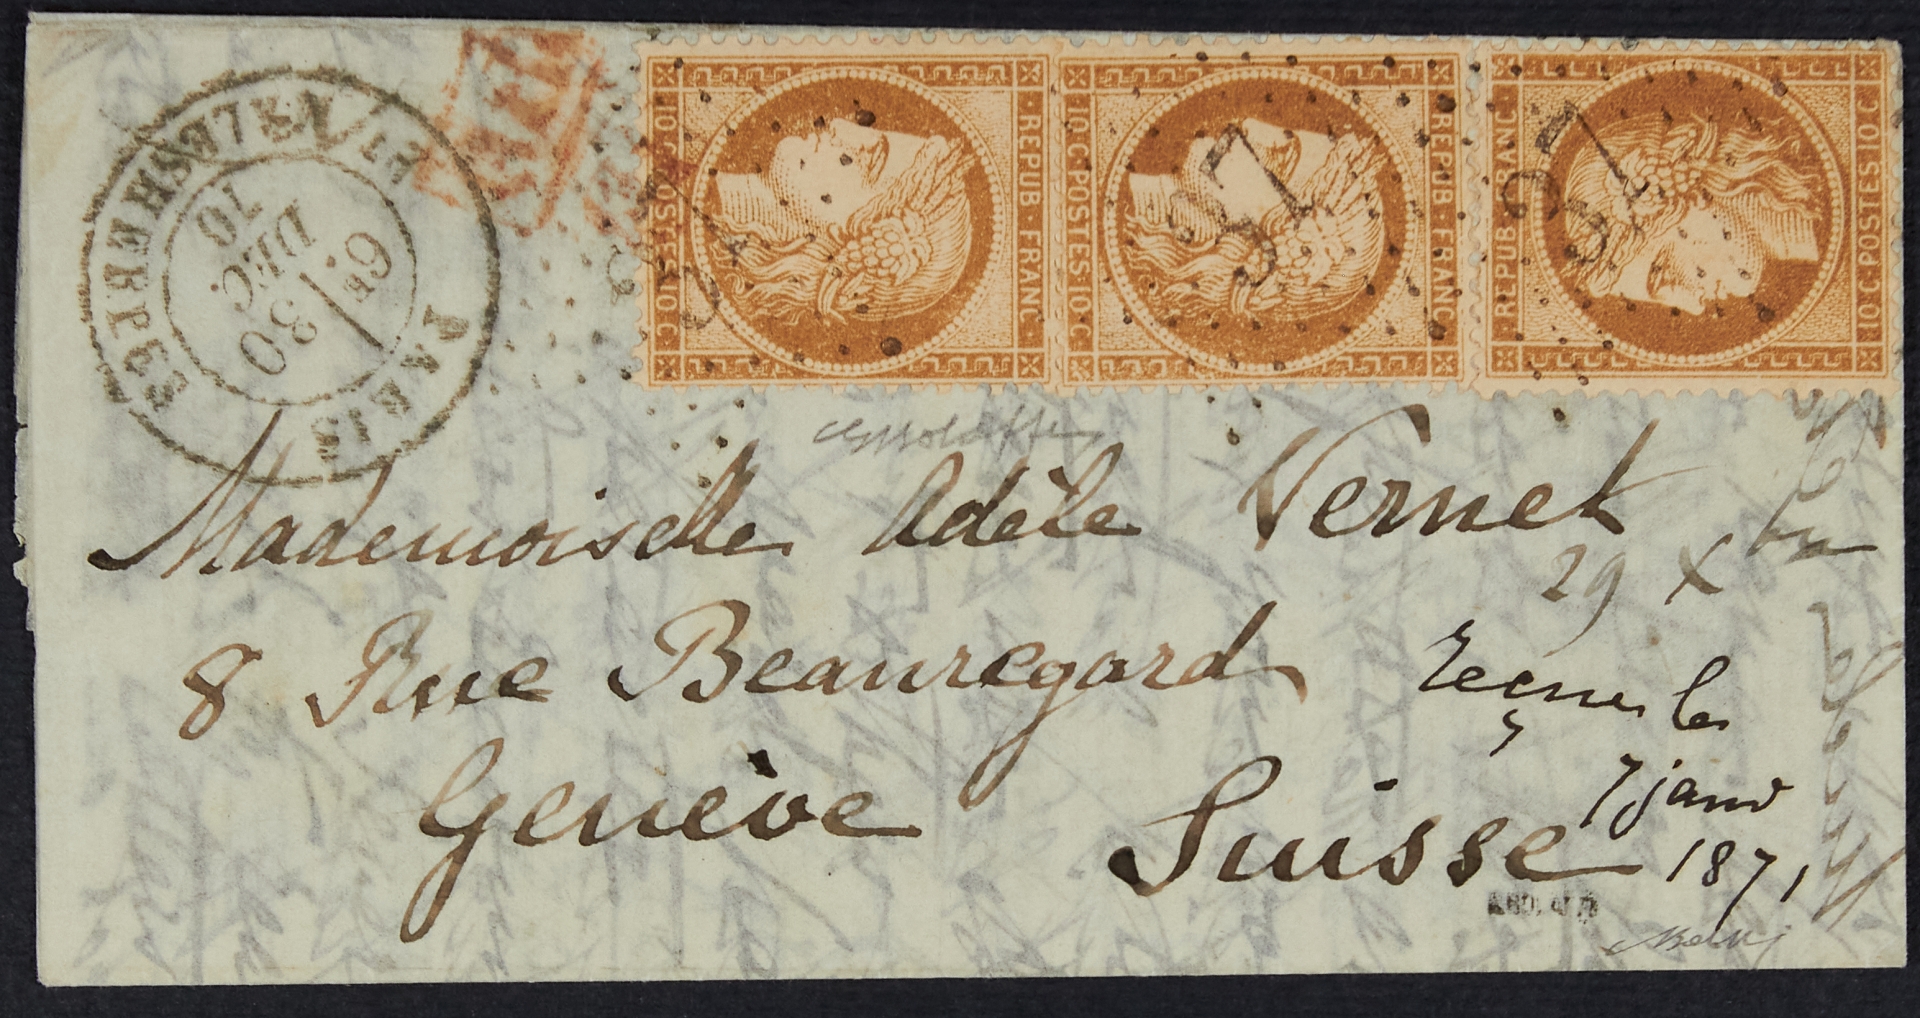 PARIS
6E
30
DEC
70
REPUB·FRANC·
10·C·POSTES·10·C
37
REPUB·FRANC·
10·C·POSTES·10·C
37
REPUB·FRANC·
10·C·POSTES·10·C
37
Mademoiselle Adèle Vernet
29 X
8 Rue Beauregard
reçue le
Genève
7 janv
Suisse
1871